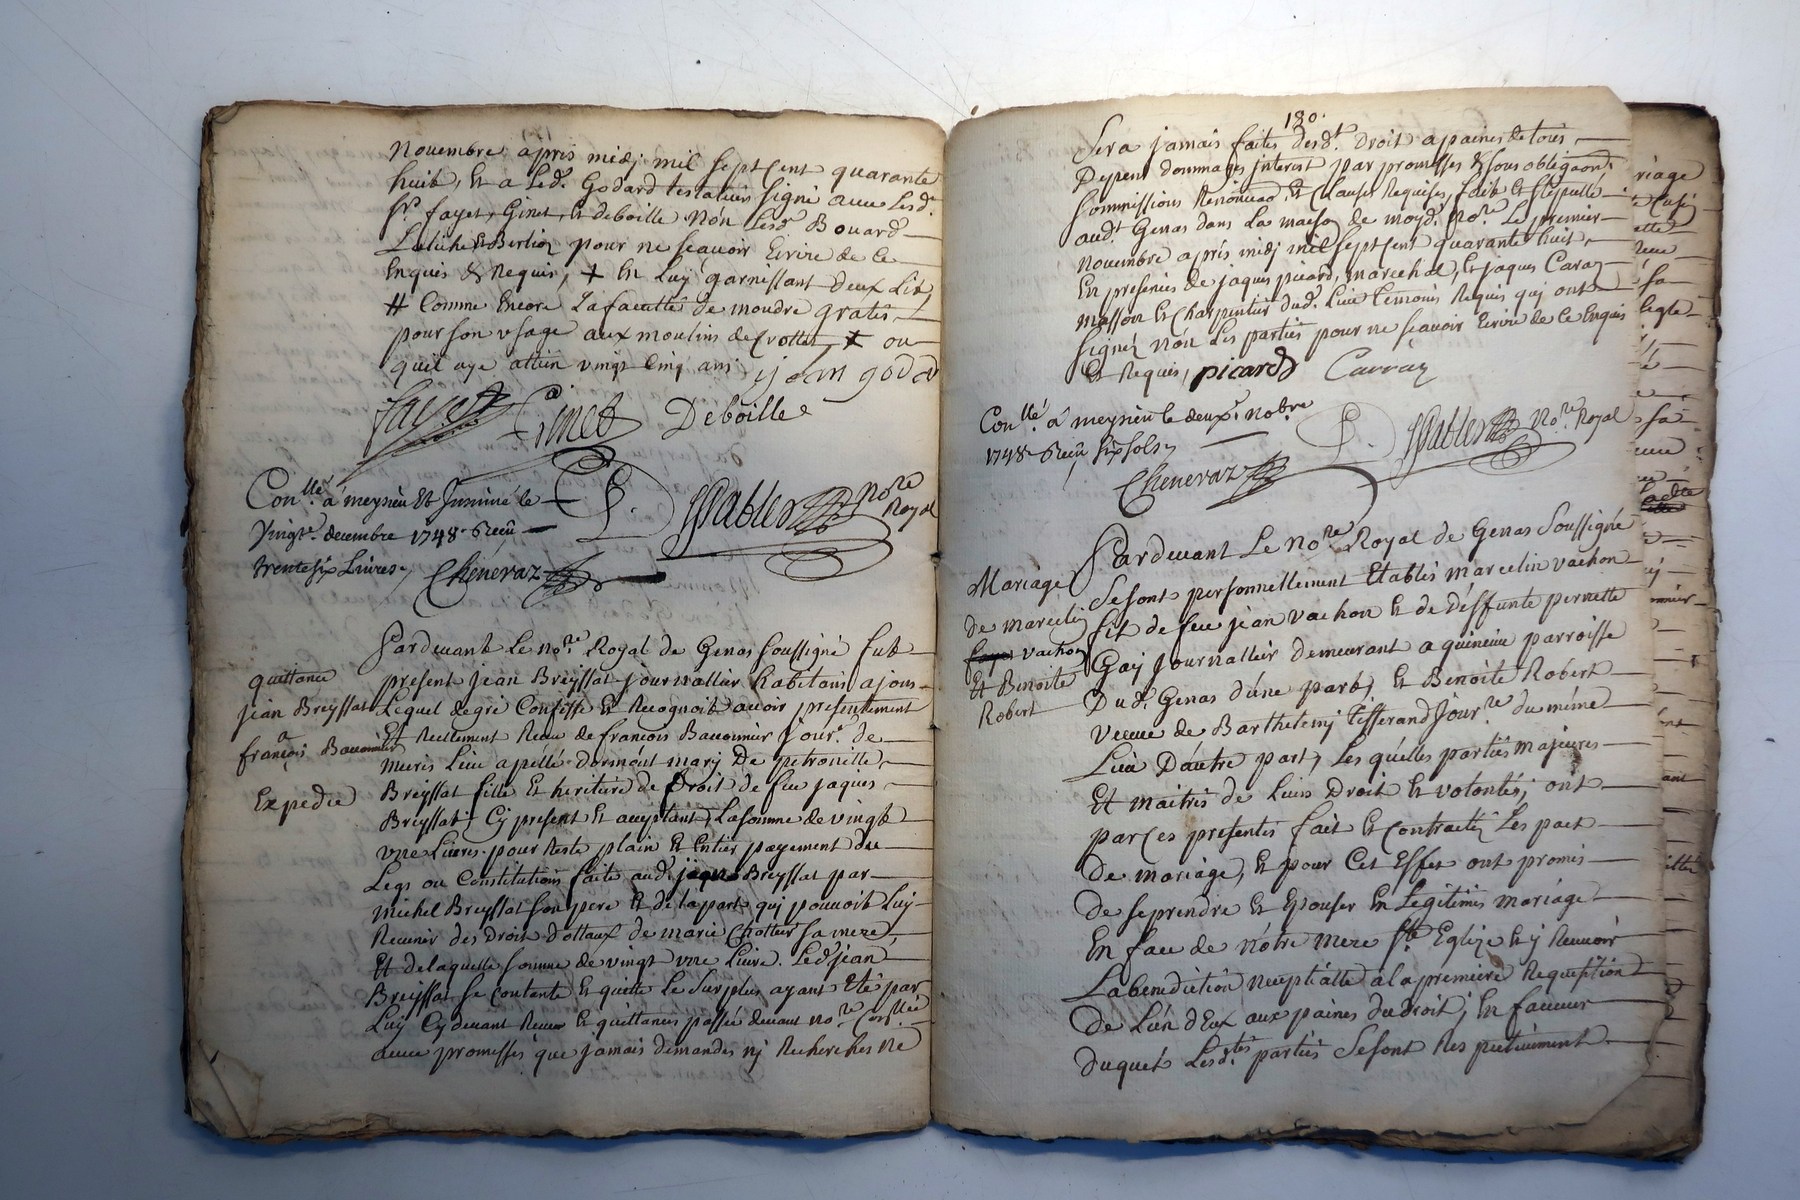 Novembre apris midj mil sept Cent quarante
huit, Et a Led.t Godard testateur signé avec Lesd.
S.rs fayet, Ginet, Et deboille Nón Lesd. Bouard
Latiche Et Berlioz pour ne scavoir Ecrire de Ce
Enquis & Requis, + En Luy garnissant deux Lits,
# Comme Encore La facultté de moudre gratis
pour son usage aux moulins de Crottes, + ou
quil aye attein vingt Cinq ans jean godard
fayet Ginet Deboille
Con.llé á meysieu Et Insinué le
Vingt.e decembre 1748. Receû
trente six Livres, Cheneraz
P. Pablet No.re Royal
quittance
jéan Breyssat
a
françois Bauonnier
Expedié
Pardevant Le No.re Royal de Genas soussigné fut
présent jéan Breyssat journallier habitant a jons
Lequel degré Confesse Et Recognoit avoir presentement
Et Reellement Receu de francois Bauonnier Jour.r de
mûres Lieu apéllé dormónt mary De petronille
Breyssat fille Et heritiere de Droit de feu jaques
Breyssat Cy present Et acceptant, La somme de vingt
une Livres pour Reste plain Et Entier payement du
Legs ou Constitution faite aud. jaques Breyssat par
michel Breyssat son pere Et de la part quj pouvoit Luy
Revenir des Droits dottaux de marie Chottier sa mere,
Et de laquelle somme de vingt une Livre. Led. jéan
Breyssat se Contente Et quitte Le surplus ayant Eté par
Luy Cy devant Receu Et quittances passée devant no.re Con.llée
avec promesses que jamais demandes nj Recherches Ne
180.
Sera jamais faites desd.t Droit a paines de tous
Depens dommages interest par promesses & sous obligaons
sommissions Renonciaõ Et Clauses Requises, fait Et stipullé
aud.t Genas dans La maison de moyd. No.re Le premier
novembre aprés midj mil sept Cent quarante huit,
En presences de jaques picard, marechal, Et jaques Caraz
masson Et Charpentier dud. Lieu temoins Requis quj ont
signéz Nón Les parties pour ne sçavoir Ecrire de Ce Enquis
Et Requis, picard Carraz
Con.llé á meysieu le deux.e Nobre
1748. Receû six sols,
Cheneraz
P. Pablet No.re Royal
Mariage
de marcelin
vachon
Et Benoite
Robert
Pardevant Le No.re Royal de Genas Soussigné
Se sont personnellement Etablis marcelin vachon
fils de feu jéan vachon Et de déffunte pernette
Gaÿ Journallier demeurant a quineuve parroisse
Dud. Genas d'une part, Et Benoîte Robert
veuve de Barthelemj Tisserand Jour.re du méme
Lieu D'autre part, Les quélles parties majeures
Et maitres de Leurs Droit Et volontés, ont
par Ces presentes fait Et Contractés Les pact
De mariage, Et pour Cet Effet ont promis
De se prendre Et Epouser En Légitimes mariage
En face de nótre mere s.te Eglize Et y Recevoir
La benediction nuptialle a la premiere Requisition
De L'un d'Eux aux paines du Droit, En faveur
duquel Lesd.tes parties Se sont Respectivement